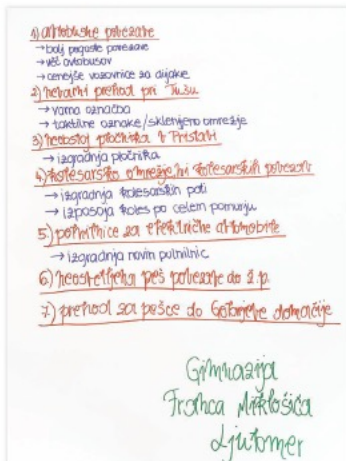 1) avtobuske povezave
→ bolj pogoste povezave
→ več avtobusov
→ cenejše vozovnice za dijake
2) nevarni prehod pri Tušu
→ varna označba
→ taktilne oznake/sklenjeno omrežje
3) neobstoj pločnika v Pristavi
→ izgradnja pločnika
4) kolesarsko omrežje ni kolesarskih povezav
→ izgradnja kolesarskih poti
→ izposoja koles po celem pomurju
5) polnilnice za električne avtomobile
→ izgradnja novih polnilnic
6) neosvetljena peš povezave do ž.p.
7.) prehod za pešce do domačije
Gimnazija
Franca Miklošiča
Ljutomer